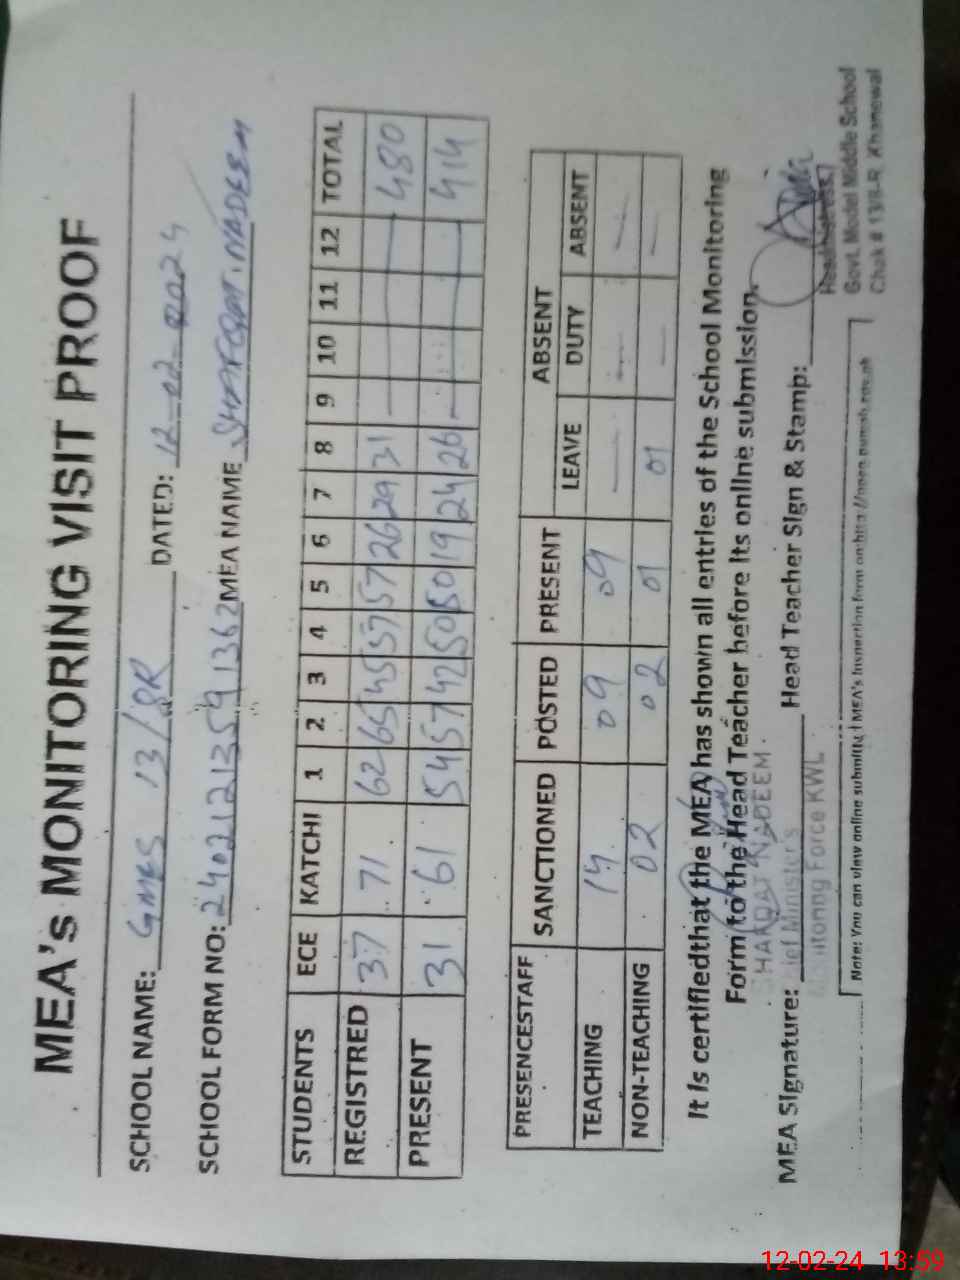 MEA's MONITORING VISIT PROOF
SCHOOL NAME: GMES 13/8R DATED: 12-02-2024
SCHOOL FORM NO: 24021213591362 MEA NAME SHAFQAT NADEEM
STUDENTS ECE KATCHI 1 2 3 4 5 6 7 8 9 10 11 12 TOTAL
REGISTRED 37 71 62 65 45 57 57 26 29 31 480
PRESENT 31 61 54 57 42 50 50 19 24 26 414
PRESENCESTAFF SANCTIONED POSTED PRESENT ABSENT
LEAVE DUTY ABSENT
TEACHING 14 09 09
NON-TEACHING 02 02 01 01
It is certifiedthat the MEA has shown all entries of the School Monitoring
Form to the Head Teacher before its online submission.
SHAFQAT NADEEM
MEA Signature: Head Teacher Sign & Stamp:
Chief Minister's
Monitoring Force KWL
Headmistress
Govt. Model Middle School
Chak # 13/8-R, Khanewal
Note: You can view online submitted MEA's Inspection form on http://open.punjab.gov.pk
12-02-24 13:59